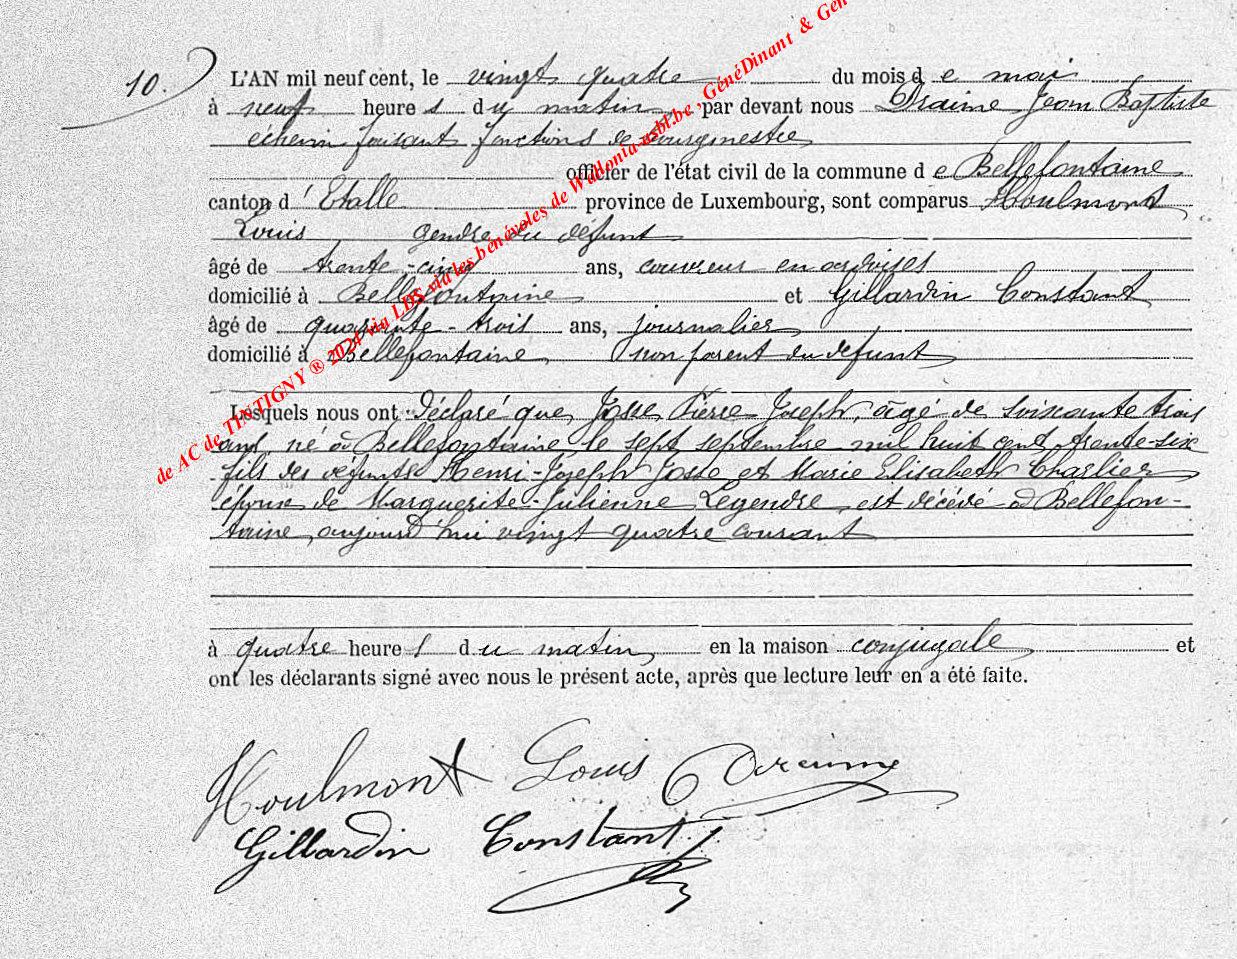 10.
L'AN mil neuf cent, le vingt quatre du mois de mai
à neuf heures du matin, par devant nous Draime Jean Baptiste
échevin faisant fonctions de bourgmestre
officier de l'état civil de la commune de Bellefontaine
canton d'Etalle province de Luxembourg, sont comparus Houlmont
Louis gendre du défunt
âgé de trente-cinq ans, couvreur en ardoises
domicilié à Bellefontaine et Gillardin Constant
âgé de quarante-trois ans, journalier
domicilié à Bellefontaine, non parent du défunt
Lesquels nous ont déclaré que Josse, Pierre Joseph, âgé de soixante trois
ans, né à Bellefontaine le sept septembre mil huit cent trente-six
fils des défunts Henri-Joseph Josse et Marie Elisabeth Charlier
époux de Marguerite-Julienne Legendre, est décédé à Bellefon-
taine, aujourd'hui vingt quatre courant
à quatre heures du matin, en la maison conjugale, et
ont les déclarants signé avec nous le présent acte, après que lecture leur en a été faite.
Houlmont Louis Draime
Gillardin Constant
de AC de TINTIGNY ® 2024 via LDS via les bénévoles de Wallonia-asbl.be, GénéDinant & Gén